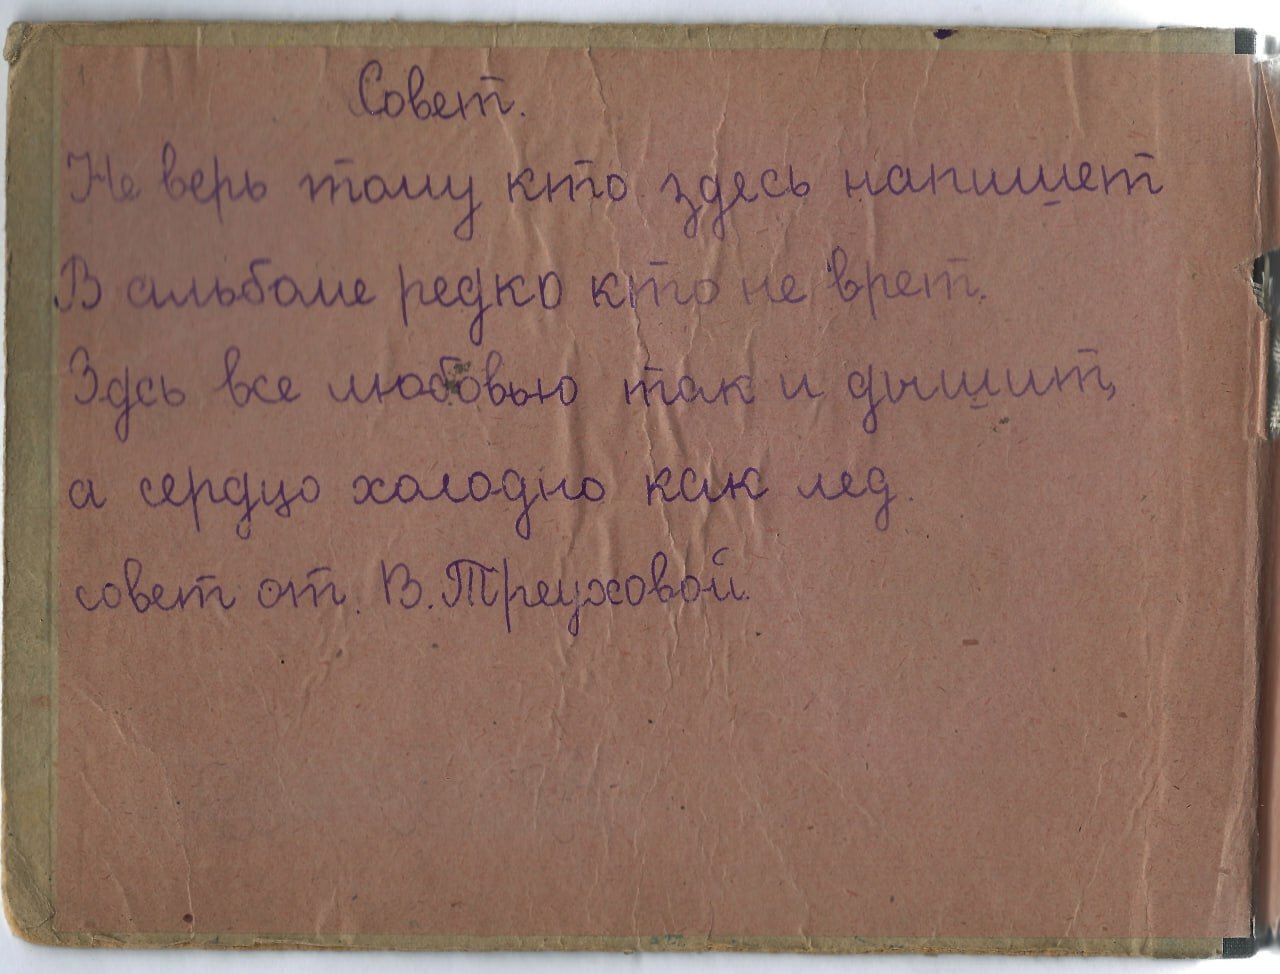 Совет.
Не верь тому кто здесь напишет
В альбоме редко кто не врет.
Здсь все любовью так и дышит,
а сердцо холодно как лед.
совет от. В. Треуховой.